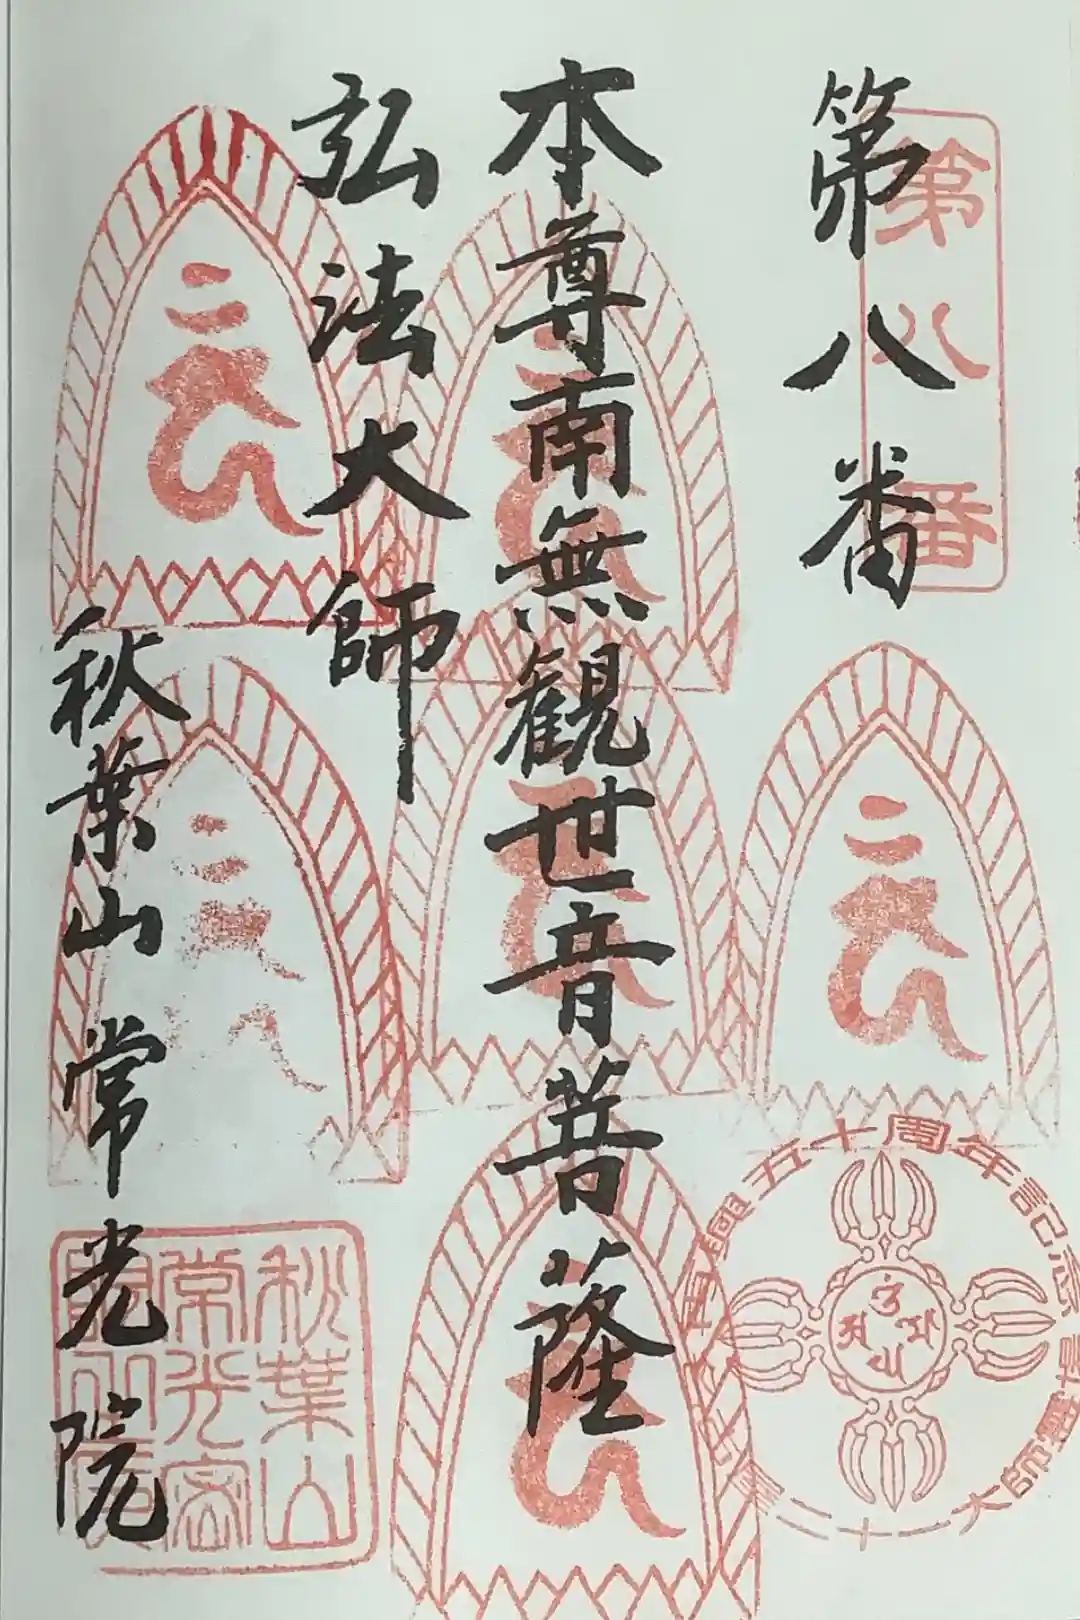 第八番
第八番
本尊南無観世音菩薩
弘法大師
秋葉山常光院
興五十周年記念
大師靈場
秋葉山
常光密